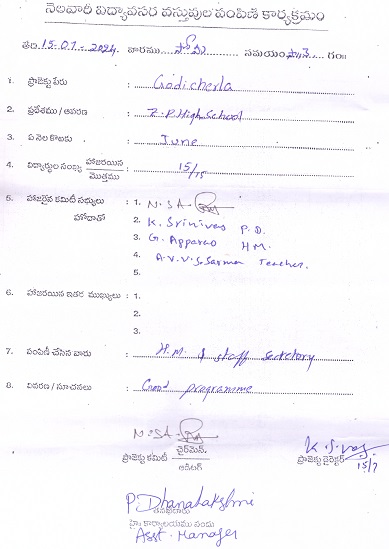 నెలవారీ విద్యావసర వస్తువుల పంపిణీ కార్యక్రమం
తేది 15-07-2024 వారము సోమ సమయం గం॥
1. ప్రాజెక్టు పేరు : Godicherla
2. ప్రదేశము / ఆవరణ : Z.P. High School
3. ఏ నెల కొఱకు : June
4. విద్యార్థుల సంఖ్య హాజరయిన / మొత్తము : 15/15
5. హాజరైన కమిటీ సభ్యులు : 1. N.SA-
హోదాతో 2. K. Srinivas P.D.
3. G. Apparao H.M.
4. A.V.V.S. Sarma Teacher.
5.
6. హాజరయిన ఇతర ముఖ్యులు : 1.
2.
3.
7. పంపిణీ చేసిన వారు : H.M & staff Secretory
8. వివరణ / సూచనలు : Good programme
N.SA
ప్రాజెక్టు కమిటీ చైర్‌మెన్, / ఆడిటర్
K.S.vas
ప్రాజెక్టు డైరెక్టర్
15/7
P. Dhanalakshmi
హై॥ కార్యాలయము నందు
Asst. Manager